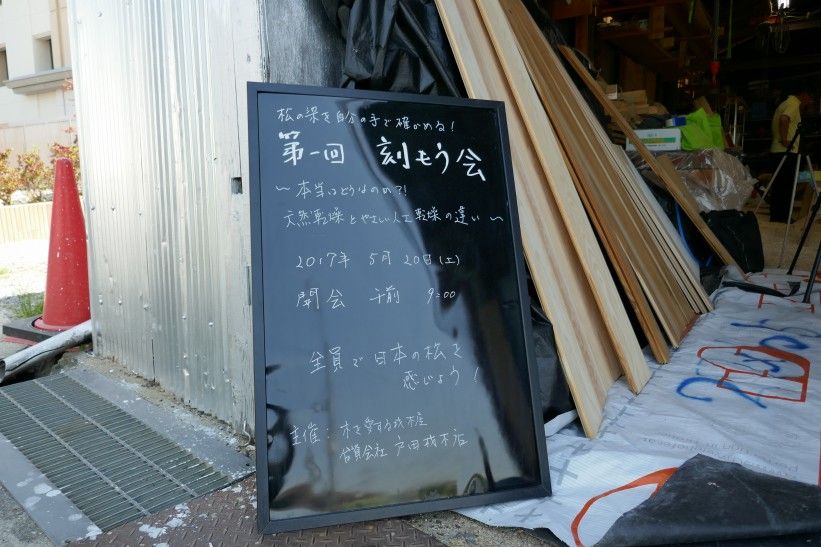 松の梁を自分の手で確かめる!
第一回 刻もう会
～本当はどうなのか?!
天然乾燥とやさしい人工乾燥の違い～
2017年 5月20日(土)
開会 午前 9:00
全員で日本の松を
感じよう!
主催:木を愛する材木屋
合資会社 戸田材木店